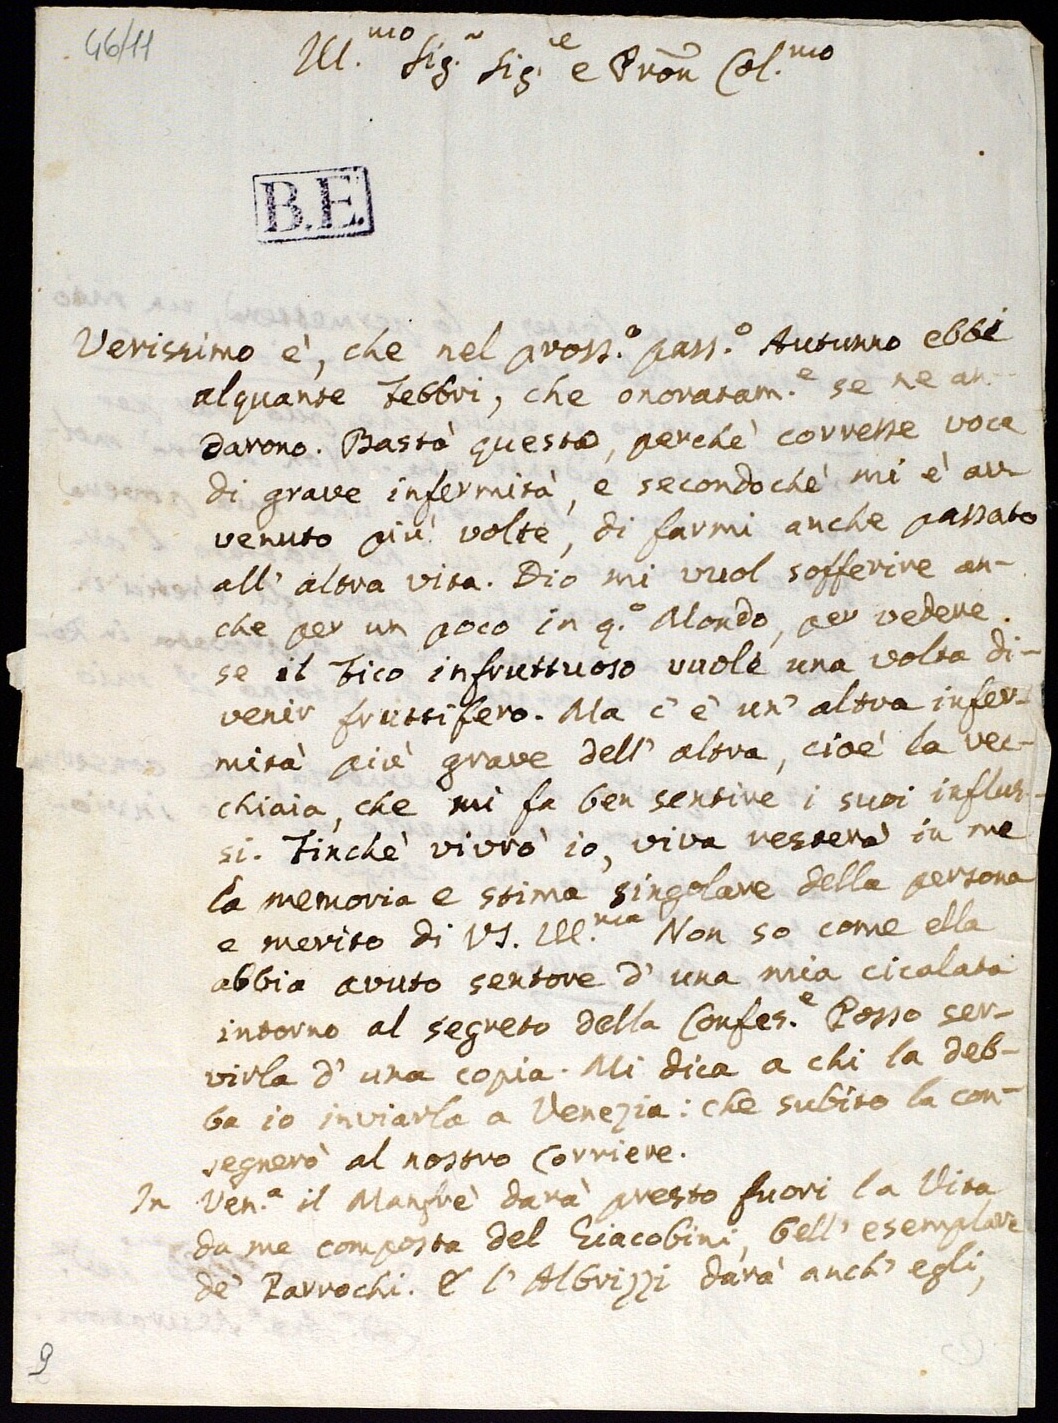 46/11
Ill.mo Sig.r Sig.re e Pron Col.mo
B.E.
Verissimo è, che nel pross.o pass.o Autunno ebbi
alquante Febbri, che onoratam.e se ne an-
darono. Bastò questo, perchè corresse voce
di grave infermità, e secondochè mi è av-
venuto più volte, di farmi anche passato
all' altra vita. Dio mi vuol sofferire an-
che per un poco in q.o Mondo, per vedere
se il Fico infruttuoso vuole una volta di-
venir fruttifero. Ma c' è un' altra infer-
mità più grave dell' altra, cioè la vec-
chiaia, che mi fa ben sentire i suoi influs-
si. Finchè vivrò io, viva resterà in me
la memoria e stima singolare della persona
e merito di VS. Ill.ma Non so come ella
abbia avuto sentore d' una mia cicalata
intorno al segreto della Confes.e Posso ser-
virla d' una copia. Mi dica a chi la deb-
ba io inviarla a Venezia: che subito la con-
segnerò al nostro Corriere.
In Ven.a il Manfrè darà presto fuori la Vita
da me composta del Giacobini, bell' esemplare
de' Parrochi. E l' Albrizzi darà anch' egli,
9